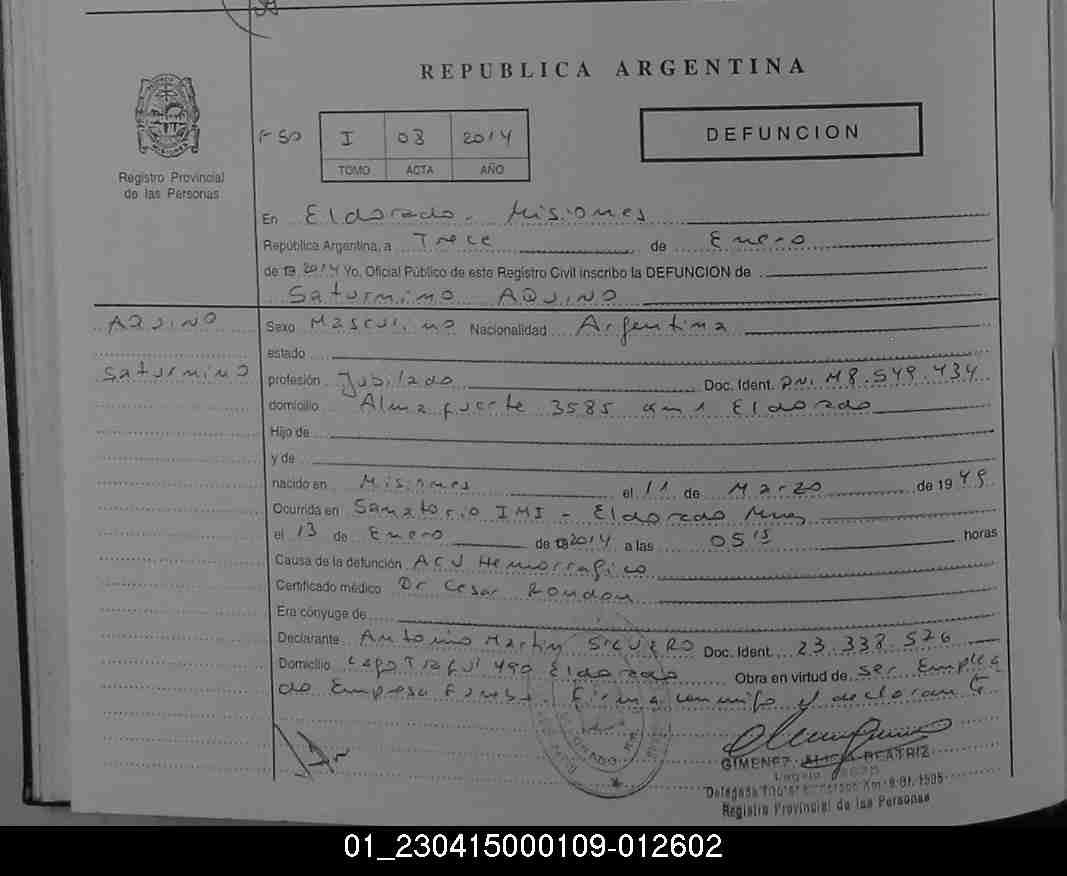 REPUBLICA ARGENTINA
Registro Provincial
de las Personas
I 03 2014
TOMO ACTA AÑO
DEFUNCION
En Eldorado. Misiones
República Argentina, a Trece de Enero
de 2014 Yo, Oficial Público de este Registro Civil inscribo la DEFUNCION de
Saturnino AQUINO
AQUINO
Saturnino
Sexo Masculino Nacionalidad Argentina
estado
profesión Jubilado Doc. Ident. DNI. M8.549.434
domicilio Almafuerte 3585 km 1 Eldorado
Hijo de
y de
nacido en Misiones el 11 de Marzo de 1949
Ocurrida en Sanatorio IMI - Eldorado Mnes
el 13 de Enero de 2014 a las 05 15 horas
Causa de la defunción ACV Hemorragico
Certificado médico Dr Cesar Rondon
Era cónyuge de
Declarante Antonio Martin Doc. Ident. 23.338.526
Domicilio Lago 490 Eldorado Obra en virtud de ser Emplea
do Empresa Funeb. Firma conmigo el declarante
GIMENEZ BEATRIZ
Registro Provincial de las Personas
01_230415000109-012602